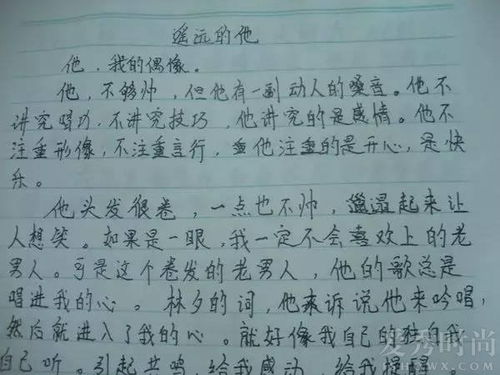 遥远的他
他，我的偶像。
他，不够帅，但他有一副动人的嗓音。他不
讲究唱功，不讲究技巧，他讲究的是感情。他不
注重形像，不注重言行，他注重的是开心，是快
乐。
他头发很卷，一点也不帅，起来让
人想笑。如果是一眼，我一定不会喜欢上的老
男人。可是这个卷发的老男人，他的歌总是
唱进我的心。林夕的词，他来诉说他来吟唱，
然后就进入了我的心。就好像我自己的独白我
自己听。引起共鸣，给我感动，给我提醒。
秀时尚